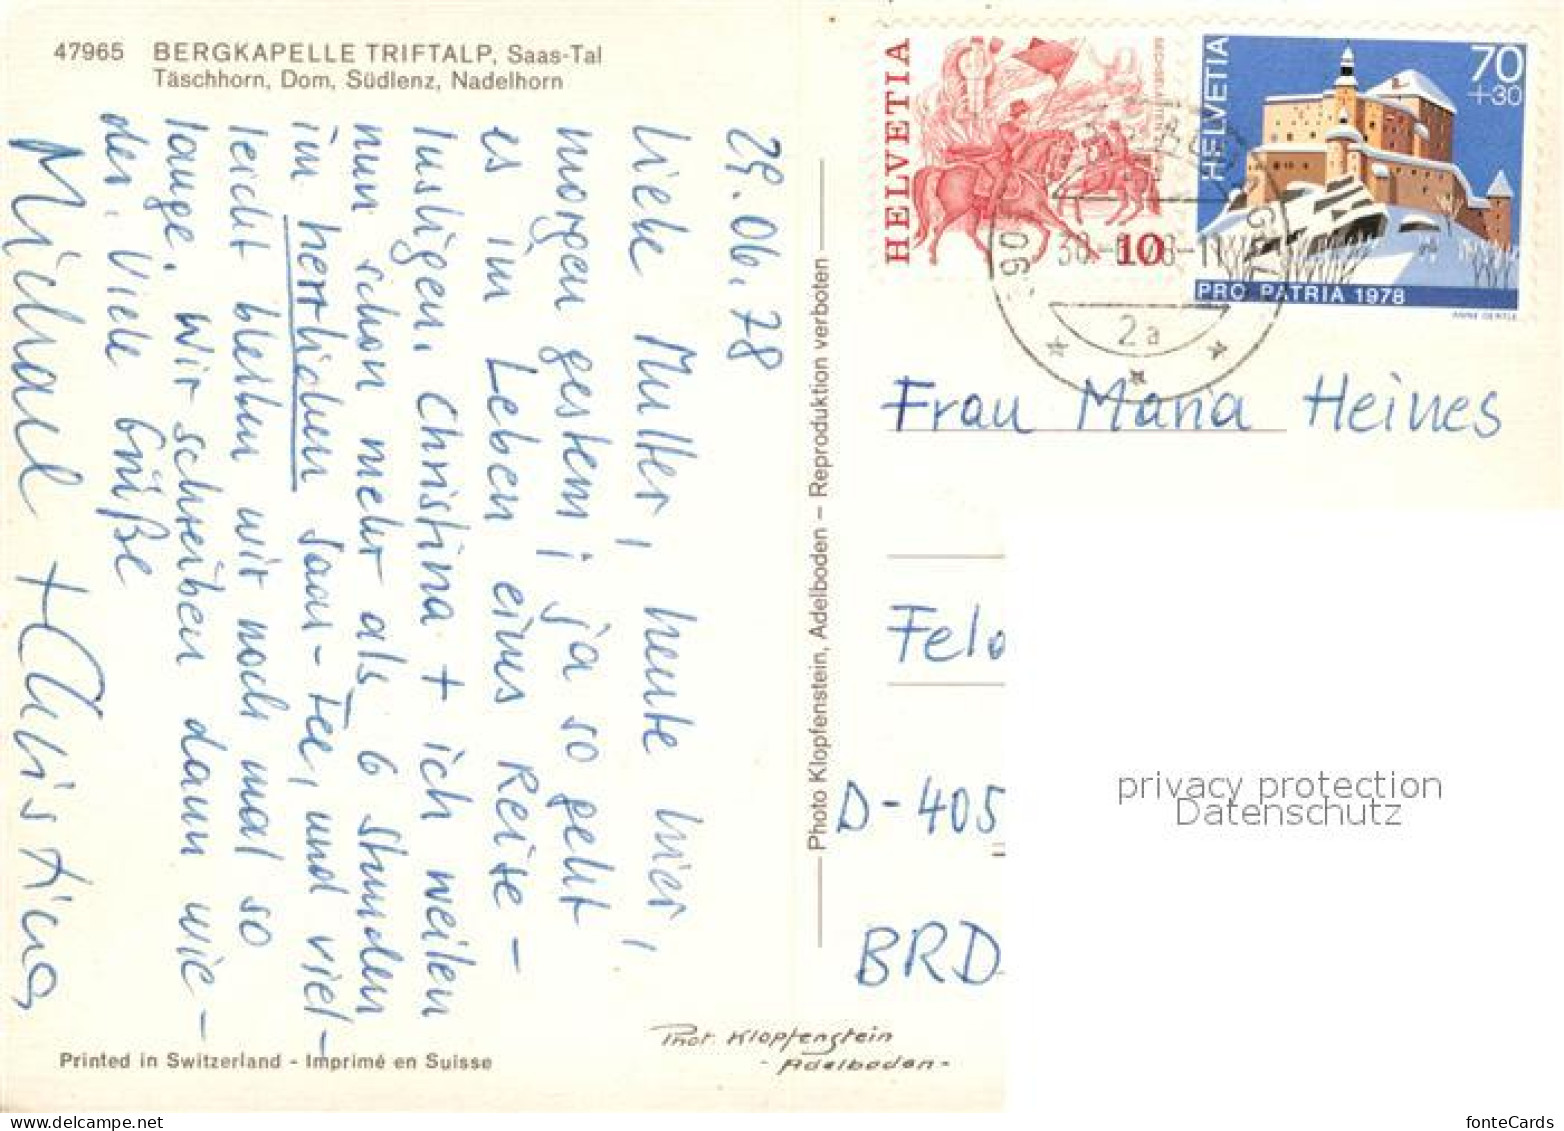 47965 BERGKAPELLE TRIFTALP, Saas-Tal
Täschhorn, Dom, Südlenz, Nadelhorn
29.06.78
Liebe Mutter, heute hier,
morgen gestern; ja so geht
es im Leben eines Reise-
lustigen. Christina + ich weilen
nun schon mehr als 6 Stunden
im herrlichen Saas-Fee, und viel-
leicht bleiben wir noch mal so
lange. Wir schreiben dann wie-
der. Viele Grüße
Michael + Christina
Printed in Switzerland - Imprimé en Suisse
Photo Klopfenstein, Adelboden – Reproduktion verboten
Phot. Klopfenstein
- Adelboden -
HELVETIA
10
HELVETIA
70
+30
PRO PATRIA 1978
ANNE OERTLE
2a
Frau Maria Heines
Feld
D-405
BRD
privacy protection
Datenschutz
fonteCards